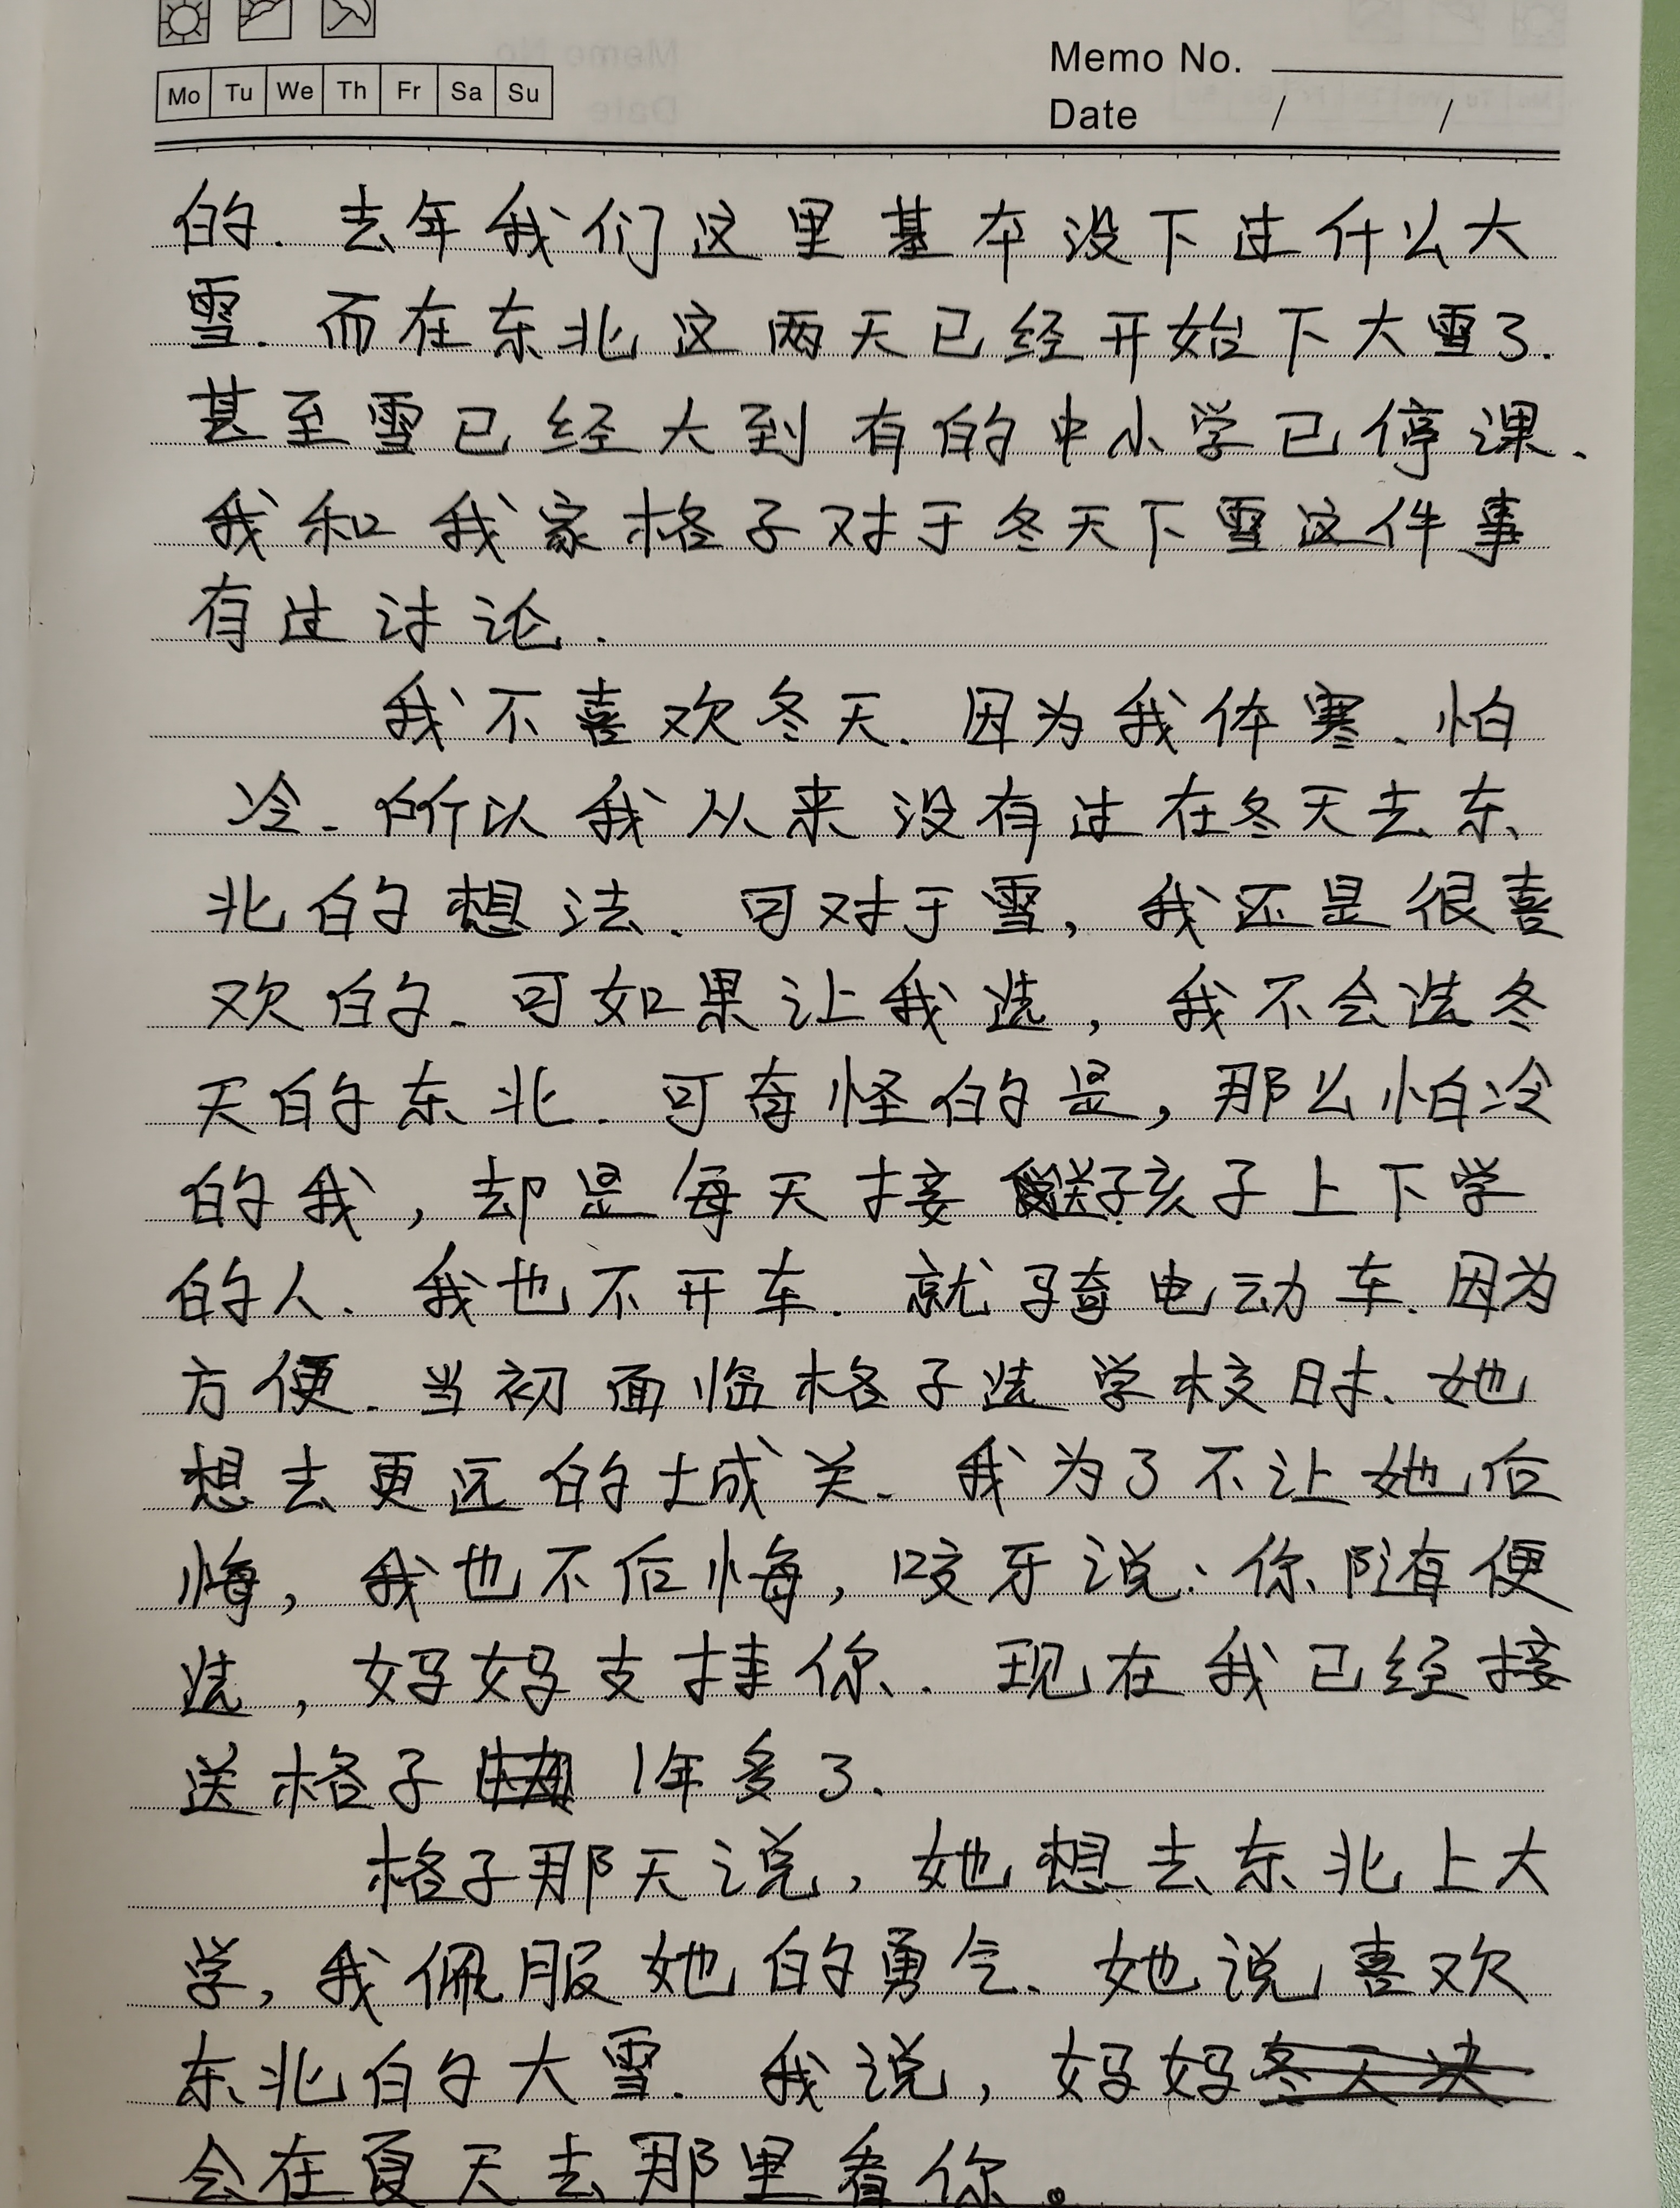 Memo No.
Mo Tu We Th Fr Sa Su
Date / /
的. 去年我们这里基本没下过什么大
雪. 而在东北这两天已经开始下大雪了.
甚至雪已经大到有的中小学已停课.
我和我家格子对于冬天下雪这件事
有过讨论.
我不喜欢冬天. 因为我体寒. 怕
冷. 所以我从来没有过在冬天去东
北的想法. 可对于雪, 我还是很喜
欢的. 可如果让我选, 我不会选冬
天的东北. 可奇怪的是, 那么怕冷
的我, 却是每天接送孩子上下学
的人. 我也不开车. 就骑电动车. 因为
方便. 当初面临格子选学校时. 她
想去更远的城关. 我为了不让她后
悔, 我也不后悔, 咬牙说: 你随便
选, 妈妈支持你. 现在我已经接
送格子 1年多了.
格子那天说, 她想去东北上大
学, 我佩服她的勇气. 她说喜欢
东北的大雪. 我说, 妈妈冬天决
会在夏天去那里看你。